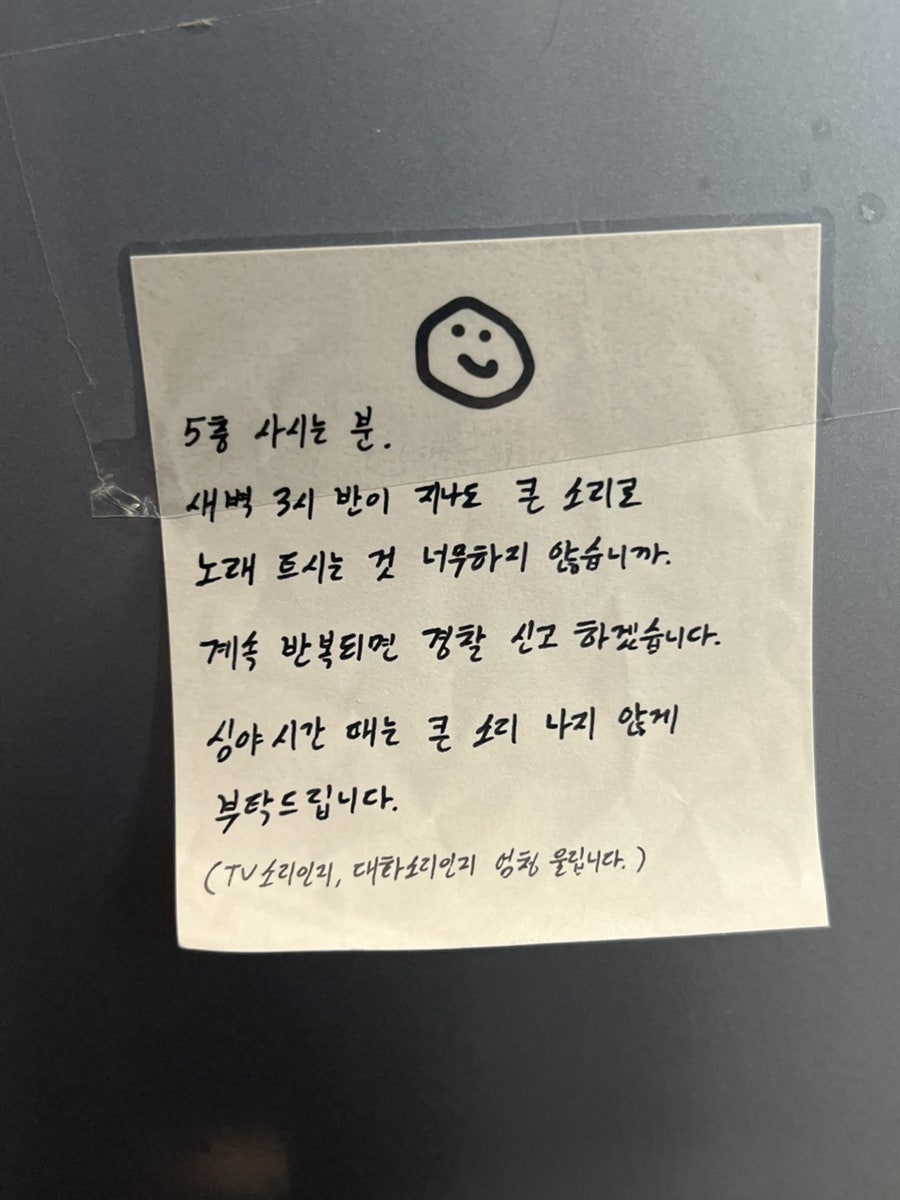 5층 사시는 분.
새벽 3시 반이 지나도 큰 소리로
노래 트시는 것 너무하지 않습니까.
계속 반복되면 경찰 신고 하겠습니다.
심야 시간 때는 큰 소리 나지 않게
부탁드립니다.
(TV소리인지, 대화소리인지 엄청 울립니다.)